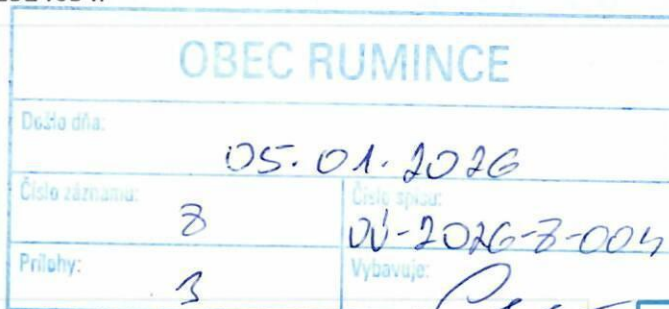 OBEC RUMINCE
Došlo dňa:
05.01.2026
Číslo záznamu: Číslo spisu:
8 OÚ-2026-8-004
Prílohy: Vybavuje:
3